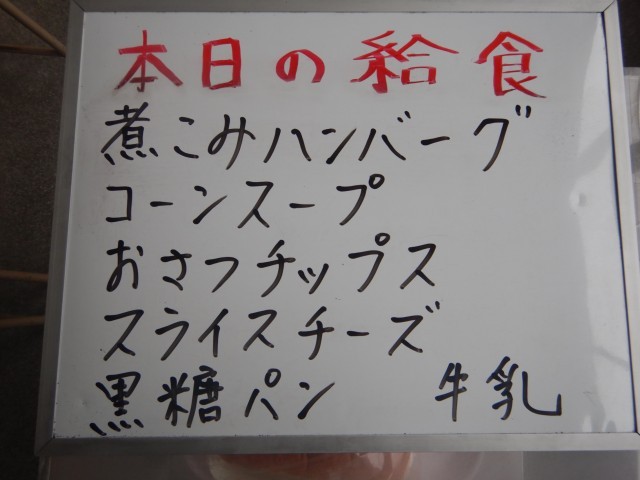 本日の給食
煮こみハンバーグ
コーンスープ
おさつチップス
スライスチーズ
黒糖パン 牛乳